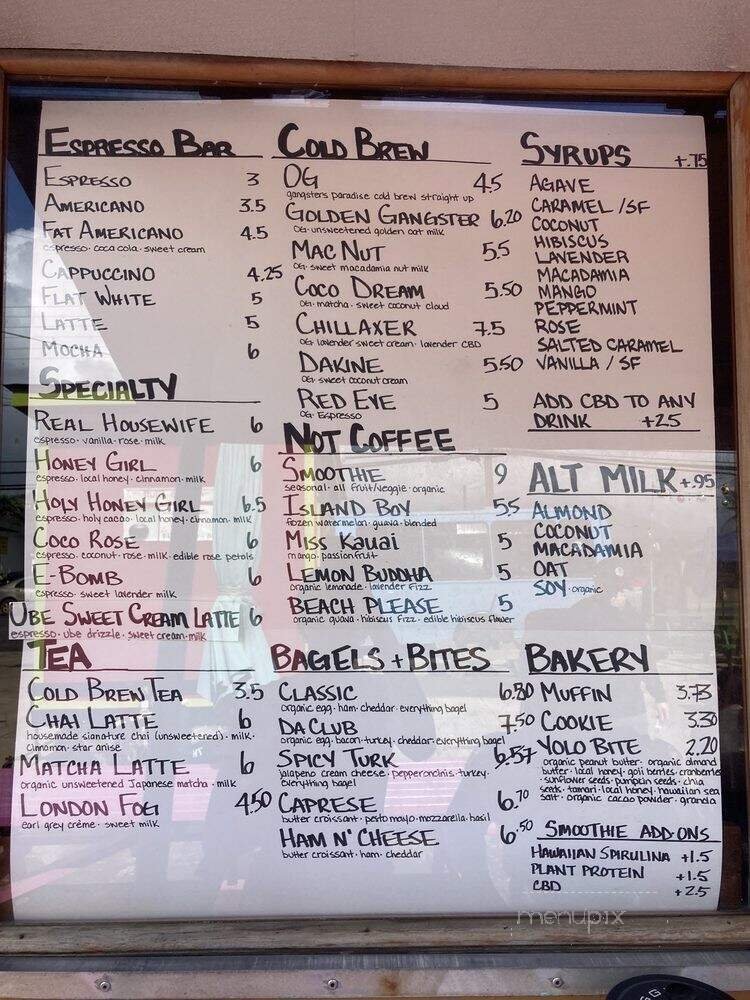 ESPRESSO BAR
ESPRESSO 3
AMERICANO 3.5
FAT AMERICANO 4.5
espresso · coca cola · sweet cream
CAPPUCCINO 4.25
FLAT WHITE 5
LATTE 5
MOCHA 6
SPECIALTY
REAL HOUSEWIFE 6
espresso · vanilla · rose · milk
HONEY GIRL 6
espresso · local honey · cinnamon · milk
HOLY HONEY GIRL 6.5
espresso · holy cacao · local honey · cinnamon · milk
COCO ROSE 6
espresso · coconut · rose · milk · edible rose petals
E-BOMB 6
espresso · sweet lavender milk
UBE SWEET CREAM LATTE 6
espresso · ube drizzle · sweet cream · milk
TEA
COLD BREW TEA 3.5
CHAI LATTE 6
housemade signature chai (unsweetened) · milk ·
cinnamon · star anise
MATCHA LATTE 6
organic unsweetened Japanese matcha · milk
LONDON FOG 4.50
earl grey crème · sweet milk
COLD BREW
OG 4.5
gangsters paradise cold brew straight up
GOLDEN GANGSTER 6.20
OG · unsweetened golden oat milk
MAC NUT 5.5
OG · sweet macadamia nut milk
COCO DREAM 5.50
OG · matcha · sweet coconut cloud
CHILLAXER 7.5
OG lavender sweet cream · lavender CBD
DAKINE 5.50
OG · sweet coconut cream
RED EYE 5
OG · Espresso
NOT COFFEE
SMOOTHIE 9
seasonal · all fruit/veggie · organic
ISLAND BOY 5.5
frozen watermelon · guava · blended
MISS KAUAI 5
mango · passionfruit
LEMON BUDDHA 5
organic lemonade · lavender fizz
BEACH PLEASE 5
organic guava · hibiscus fizz · edible hibiscus flower
BAGELS + BITES
CLASSIC 6.80
organic egg · ham · cheddar · everything bagel
DA CLUB 7.50
organic egg · bacon · turkey · cheddar · everything bagel
SPICY TURK 6.57
jalapeno cream cheese · pepperoncinis · turkey ·
everything bagel
CAPRESE 6.70
butter croissant · pesto mayo · mozzarella · basil
HAM N' CHEESE 6.50
butter croissant · ham · cheddar
SYRUPS +.75
AGAVE
CARAMEL / SF
COCONUT
HIBISCUS
LAVENDER
MACADAMIA
MANGO
PEPPERMINT
ROSE
SALTED CARAMEL
VANILLA / SF
ADD CBD TO ANY
DRINK +2.5
ALT MILK +.95
ALMOND
COCONUT
MACADAMIA
OAT
SOY · organic
BAKERY
MUFFIN 3.73
COOKIE 3.30
YOLO BITE 2.20
organic peanut butter · organic almond
butter · local honey · goji berries · cranberries
· sunflower seeds · pumpkin seeds · chia
seeds · tamari · local honey · hawaiian sea
salt · organic cacao powder · granola
SMOOTHIE ADD ONS
HAWAIIAN SPIRULINA +1.5
PLANT PROTEIN +1.5
CBD +2.5
menupix